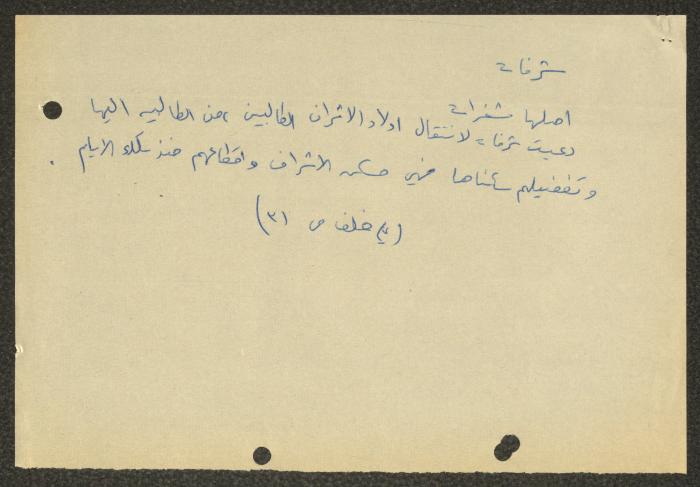 شرفات
اصلها شفرات
دعيت شرفات لانتقال اولاد الاشراف الطالبين من الطالبيه اليها
وتفضيلهم سكناها فهي مسكن الاشراف واقطاعهم منذ تلك الايام .
( خلف ص ٣١)